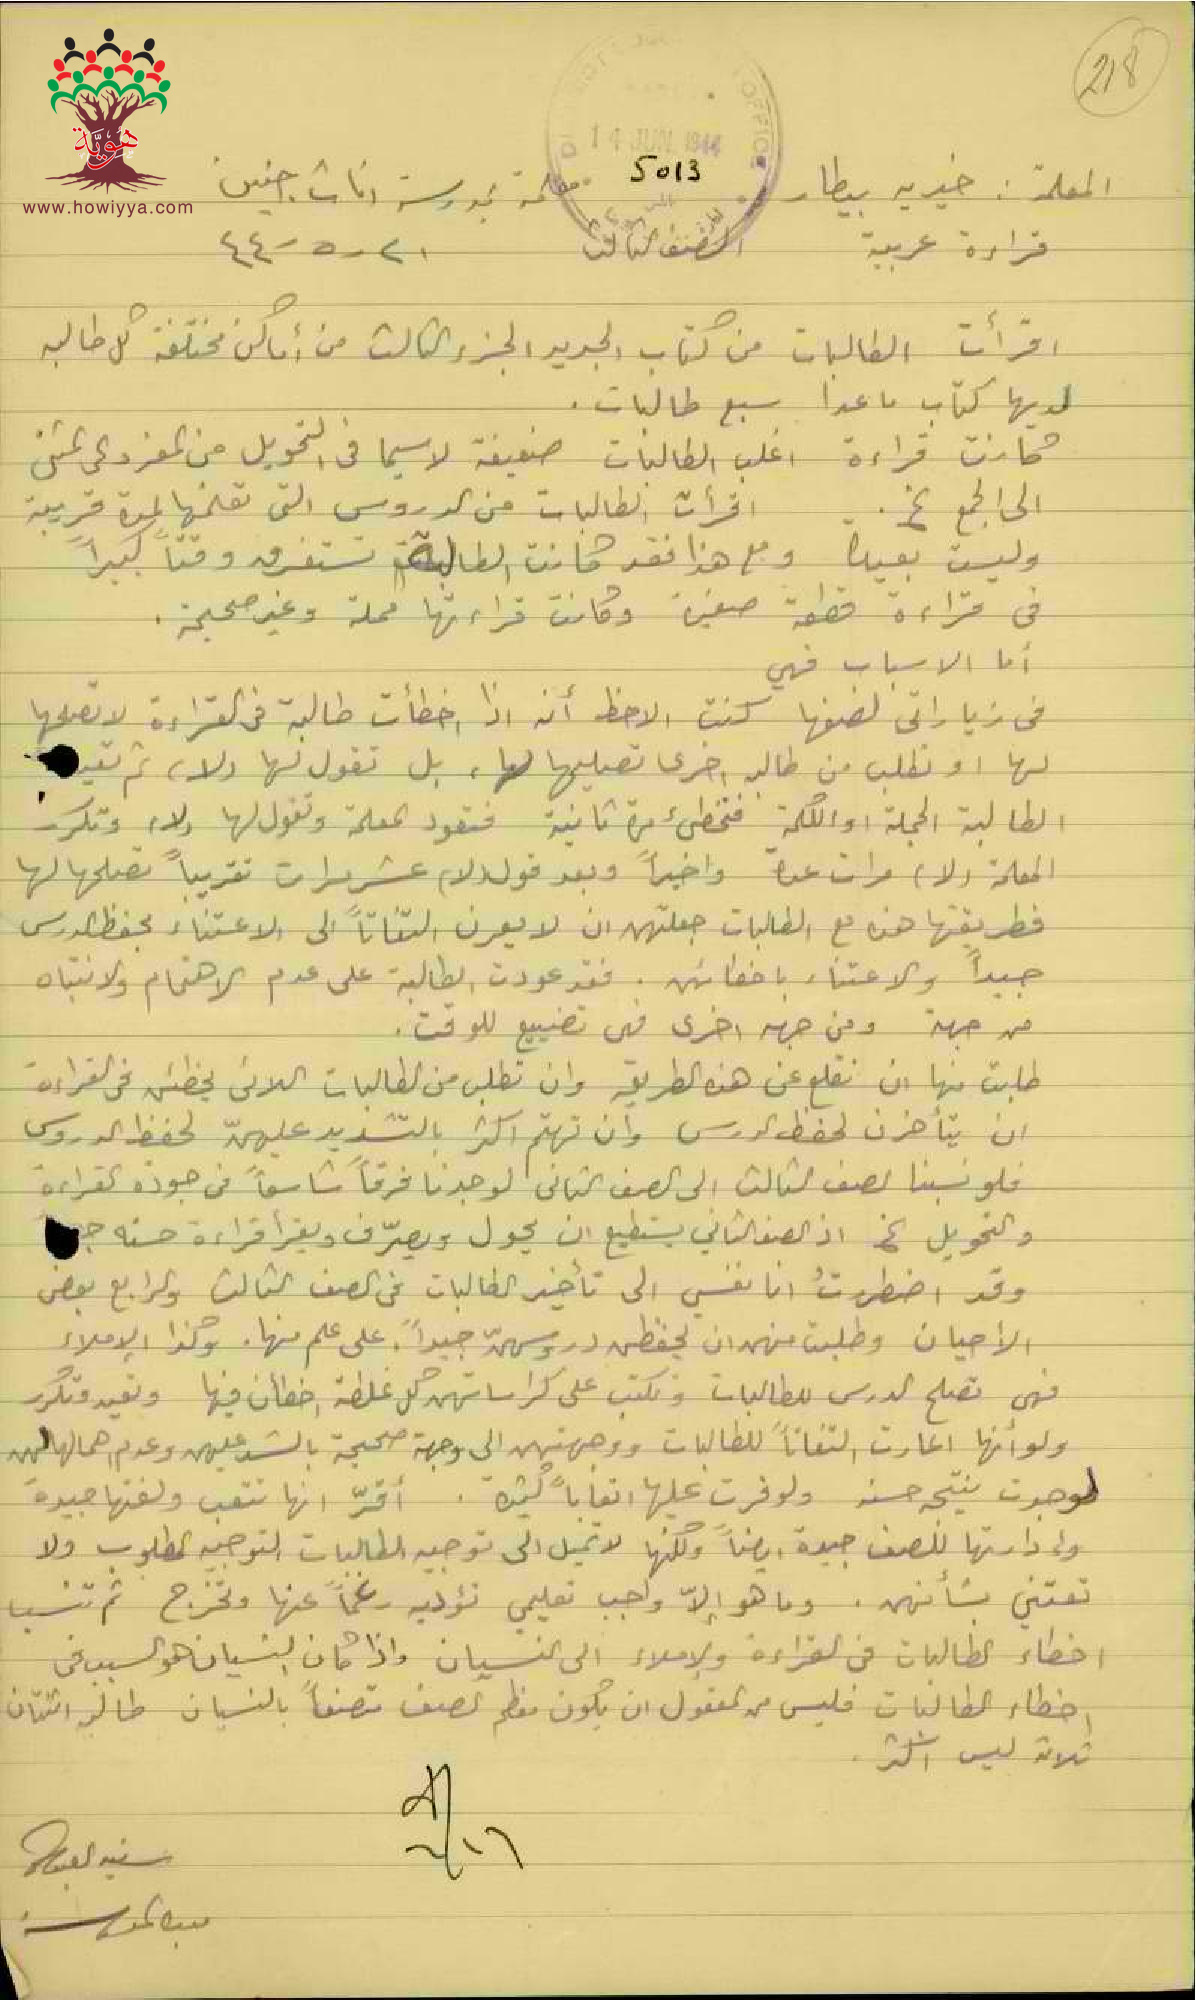 218
هوية
www.howiyya.com
14 JUN 1944
OFFICE
5013
المعلمة : خيريه بيطار معلمة بمدرسة اناث جنين
قراءة عربية الصف الثالث ٢١-٥-٤٤
اقرأت الطالبات من كتاب الجديد الجزء الثالث من أماكن مختلفة كل طالبه
لديها كتاب ما عدا سبع طالبات .
كانت قراءة اغلب الطالبات ضعيفة لاسيما في التحويل من المفرد الى المثنى
الى الجمع الخ . اقرأت الطالبات من الدروس التي تعلمنها لمدة قريبة
وليست بعيدة ومع هذا فقد كانت الطالبة تستغرق وقتاً كبيراً
في قراءة قطعة صغيرة وكانت قراءتها مملة وغير صحيحة .
أما الاسباب فهي
في زياراتي لصفها كنت الاحظ أنه اذا اخطأت طالبة في القراءة لا تصلحها
لها او تطلب من طالبه اخرى تصليحها لها ، بل تقول لها «لا» ثم تعيد
الطالبة الجملة او الكلمة فتخطئ مرة ثانية فتعود المعلمة وتقول لها «لا» وتكرر
المعلمة «لا» مرات عدة واخيراً وبعد قول «لا» عشر مرات تقريباً تصلحها لها
فطريقتها هذه مع الطالبات جعلتهن ان لا يعرن التفاتاً الى الاعتناء بحفظ الدرس
جيداً والاعتناء باخطائهن . فقد عودت الطالبة على عدم الاهتمام والانتباه
من جهة ومن جهه اخرى فهي تضييع للوقت .
طلبت منها ان تقلع عن هذه الطريقه وان تطلب من الطالبات اللائي يخطئن في القراءة
ان يتأخرن لحفظ الدرس وان تهتم اكثر بالتشديد عليهنّ لحفظ الدروس
فلو نسبنا الصف الثالث الى الصف الثاني لوجدنا فرقاً شاسعاً في جودة القراءة
والتحويل الخ اذ الصف الثاني يستطيع ان يحول ويصرّف ويقرأ قراءة حسنه
وقد اضطررتُ انا نفسي الى تأخير الطالبات في الصف الثالث والرابع بعض
الاحيان وطلبت منهن ان يحفظن دروسهنّ جيداً ، على علم منها . وكذا الإملاء
فهي تصلح الدرس للطالبات وتكتب على كراساتهن كل غلطة اخطأن فيها وتعيد وتكرر
ولو أنها اعارت التفاتاً للطالبات ووجهتهن الى وجهة صحيحة بالشد عليهن وعدم اهمالها لهن
لوجدت نتيجه حسنه ولوفرت عليها اتعاباً كثيرة . أقرّ انها تتعب ولغتها جيدة
وادارتها للصف جيدة ايضاً ولكنها لا تميل الى توجيه الطالبات التوجيه المطلوب ولا
تعتني بشأنهن . وما هو إلاّ واجب تعليمي تؤديه رغماً عنها وتخرج ثم تنسب
اخطاء الطالبات في القراءة والإملاء الى النسيان واذا كان النسيان هو السبب في
اخطاء الطالبات فليس من المعقول ان يكون معظم الصف متصفاً بالنسيان طالبه اثنتان
ثلاثة ليس اكثر .